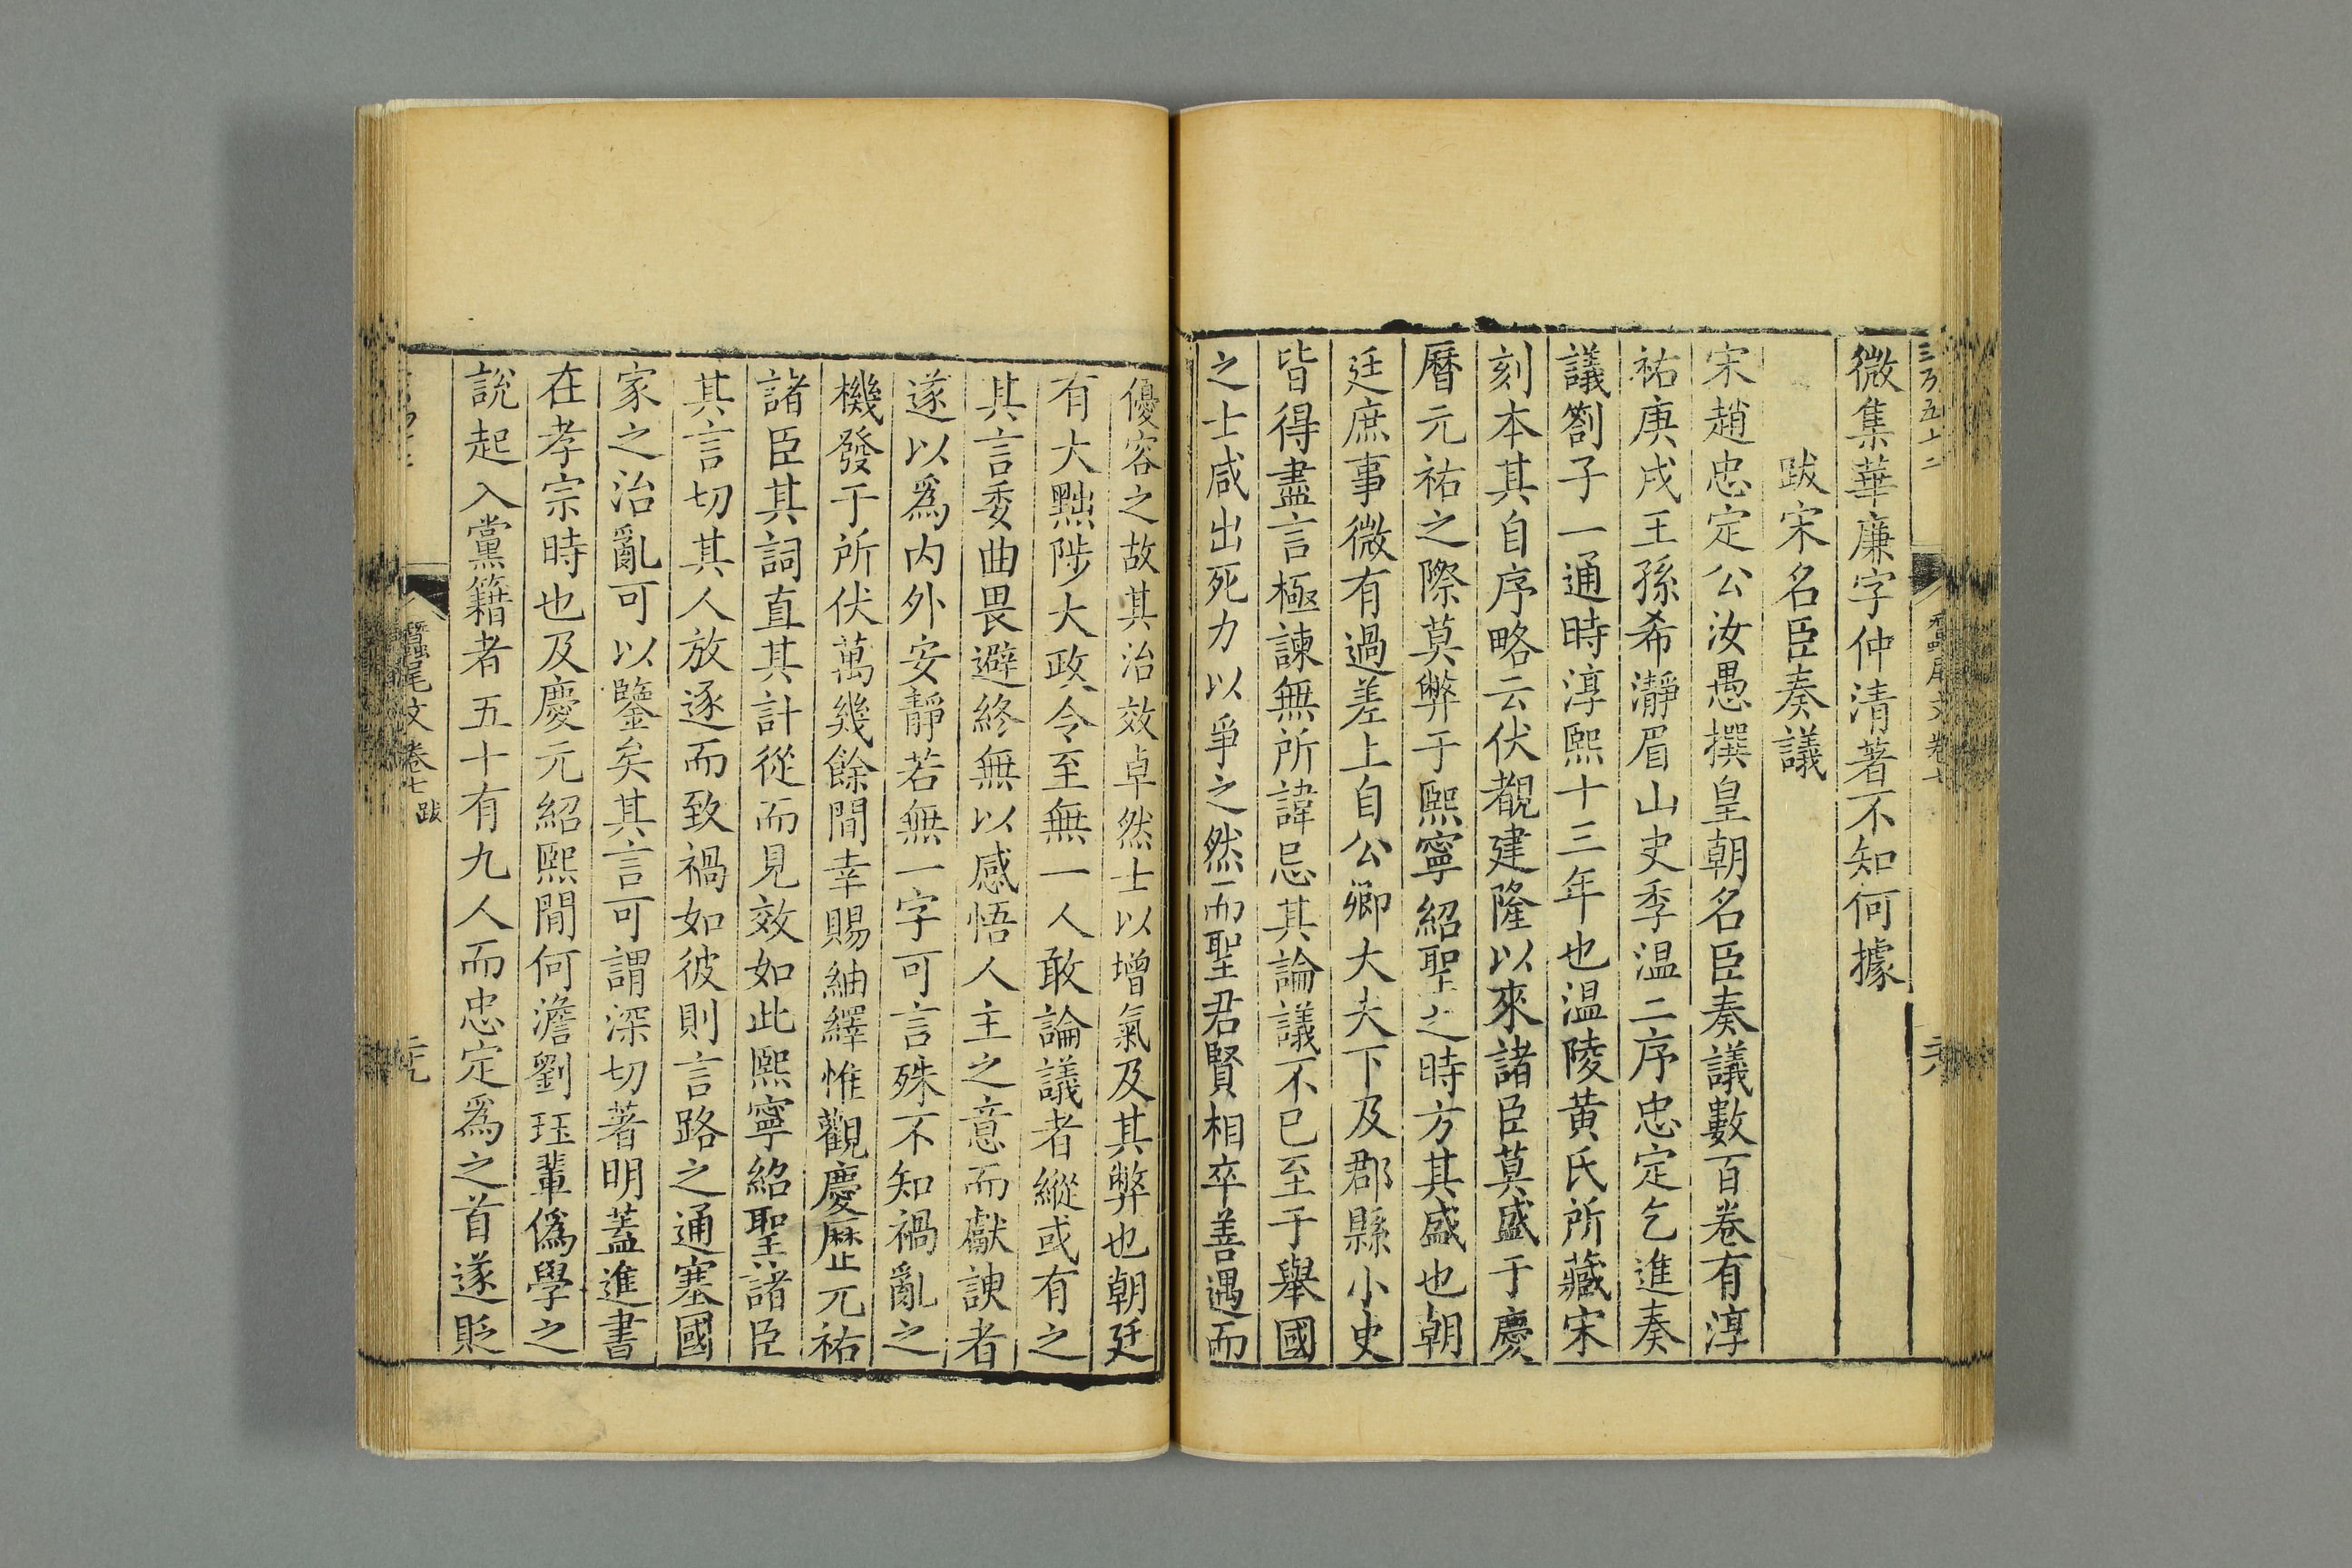 微集華廉字仲清著不知何據
跋宋名臣奏議
宋趙忠定公汝愚撰皇朝名臣奏議數百卷有淳
祐庚戌王孫希瀞眉山史季温二序忠定乞進奏
議劄子一通時淳熙十三年也温陵黄氏所藏宋
刻本其自序略云伏覩建隆以來諸臣莫盛于慶
曆元祐之際莫弊于熙寧紹聖之時方其盛也朝
廷庶事微有過差上自公卿大夫下及郡縣小吏
皆得盡言極諫無所諱忌其論議不已至于舉國
之士咸出死力以爭之然而聖君賢相卒善遇而
優容之故其治效卓然士以增氣及其弊也朝廷
有大黜陟大政令至無一人敢論議者縱或有之
其言委曲畏避終無以感悟人主之意而獻諛者
遂以爲内外安靜若無一字可言殊不知禍亂之
機發于所伏萬幾餘間幸賜紬繹惟觀慶歷元祐
諸臣其詞直其計從而見效如此熙寧紹聖諸臣
其言切其人放逐而致禍如彼則言路之通塞國
家之治亂可以鑒矣其言可謂深切著明蓋進書
在孝宗時也及慶元紹熙間何澹劉珏輩僞學之
說起入黨籍者五十有九人而忠定爲之首遂貶
蠶尾文卷七 跋